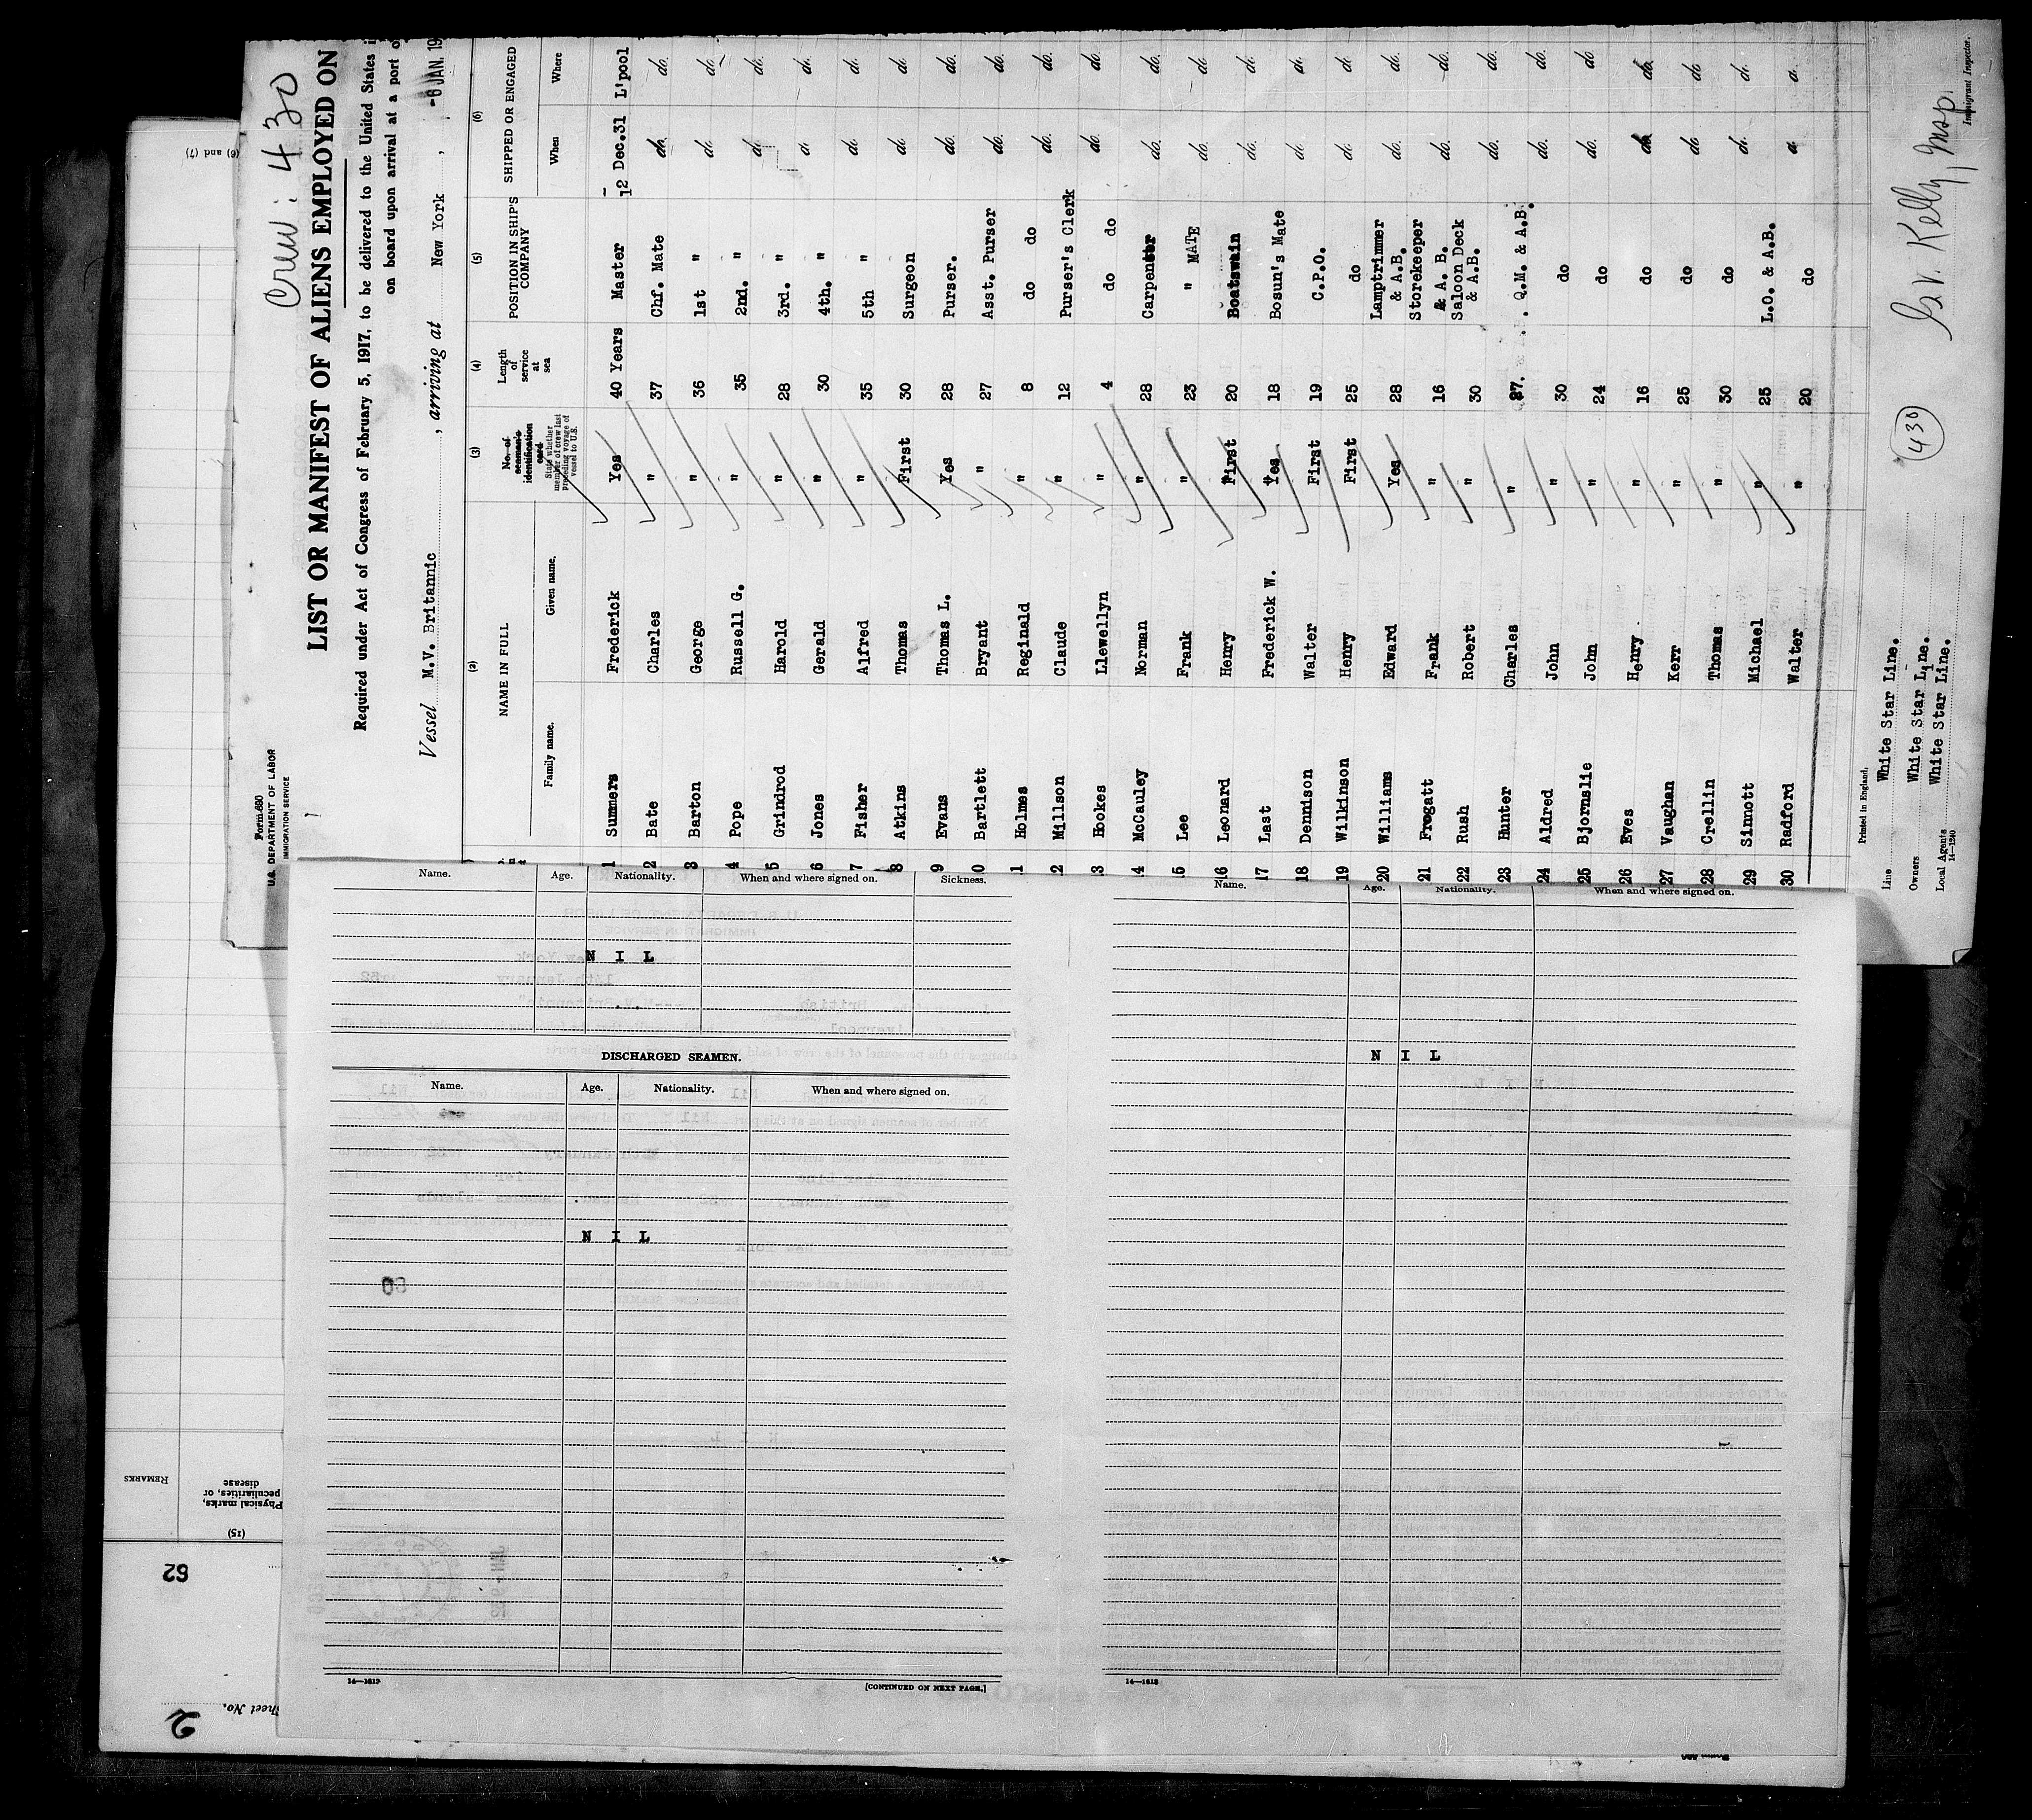 Crew: 430
Form 680
U.S. DEPARTMENT OF LABOR
IMMIGRATION SERVICE
LIST OR MANIFEST OF ALIENS EMPLOYED ON
Required under Act of Congress of February 5, 1917, to be delivered to the United States
on board upon arrival at a port
Vessel M.V. Britannic, arriving at New York, -6 JAN. 19
(2) (3) (4) (5) (6)
NAME IN FULL
Family name. Given name.
No. of seaman's identification card
State whether member of crew last preceding voyage of vessel to U.S.
Length of service at sea
POSITION IN SHIP'S COMPANY
SHIPPED OR ENGAGED
When Where
1 Summers Frederick Yes 40 Years Master 12 Dec.31 L'pool
2 Bate Charles " 37 Chf. Mate do. do.
3 Barton George " 36 1st " d. do.
4 Pope Russell G. " 35 2nd. " d. d.
5 Grindrod Harold " 28 3rd. " d. d.
6 Jones Gerald " 30 4th. " d. d.
7 Fisher Alfred " 35 5th " d. d.
8 Atkins Thomas First 30 Surgeon d. d.
9 Evans Thomas L. Yes 28 Purser. do. do.
0 Bartlett Bryant " 27 Asst. Purser do. do.
1 Holmes Reginald " 8 do do do. do.
2 Millson Claude " 12 Purser's Clerk do. do.
3 Hookes Llewellyn " 4 do do do. do.
4 McCauley Norman " 28 Carpenter do. do.
5 Lee Frank " 23 " MATE do. d.
6 Leonard Henry First 20 Boatswain do. d.
17 Last Frederick W. Yes 18 Bosun's Mate d. d.
18 Dennison Walter First 19 C.P.O. d. d.
19 Wilkinson Henry First 25 do do. do.
20 Williams Edward Yes 28 Lamptrimmer & A.B. do. do.
21 Frogatt Frank " 16 Storekeeper & A. B. do. do.
22 Rush Robert " 30 Saloon Deck & A.B. do. do.
23 Hunter Charles " 27. Q.M. & A.B. do. do.
24 Aldred John " 30 do do. do.
25 Bjornslie John " 24 do do. do.
26 Eves Henry " 16 do do. do.
27 Vaughan Kerr " 25 do do do
28 Crellin Thomas " 30 do d. d.
29 Sinnott Michael " 25 L.O. & A.B.
30 Radford Walter " 20 do
Printed in England.
Line White Star Line.
Owners White Star Line.
Local Agents White Star Line.
14—1240
430
Kelly, Insp.
Immigrant Inspector.
Name. Age. Nationality. When and where signed on. Sickness.
N I L
DISCHARGED SEAMEN.
Name. Age. Nationality. When and where signed on.
N I L
14—1613
[CONTINUED ON NEXT PAGE.]
Name. Age. Nationality. When and where signed on.
N I L
14—1613
(6) and (7)
REMARKS
Physical marks, peculiarities, or disease
(15)
62
Sheet No. 2